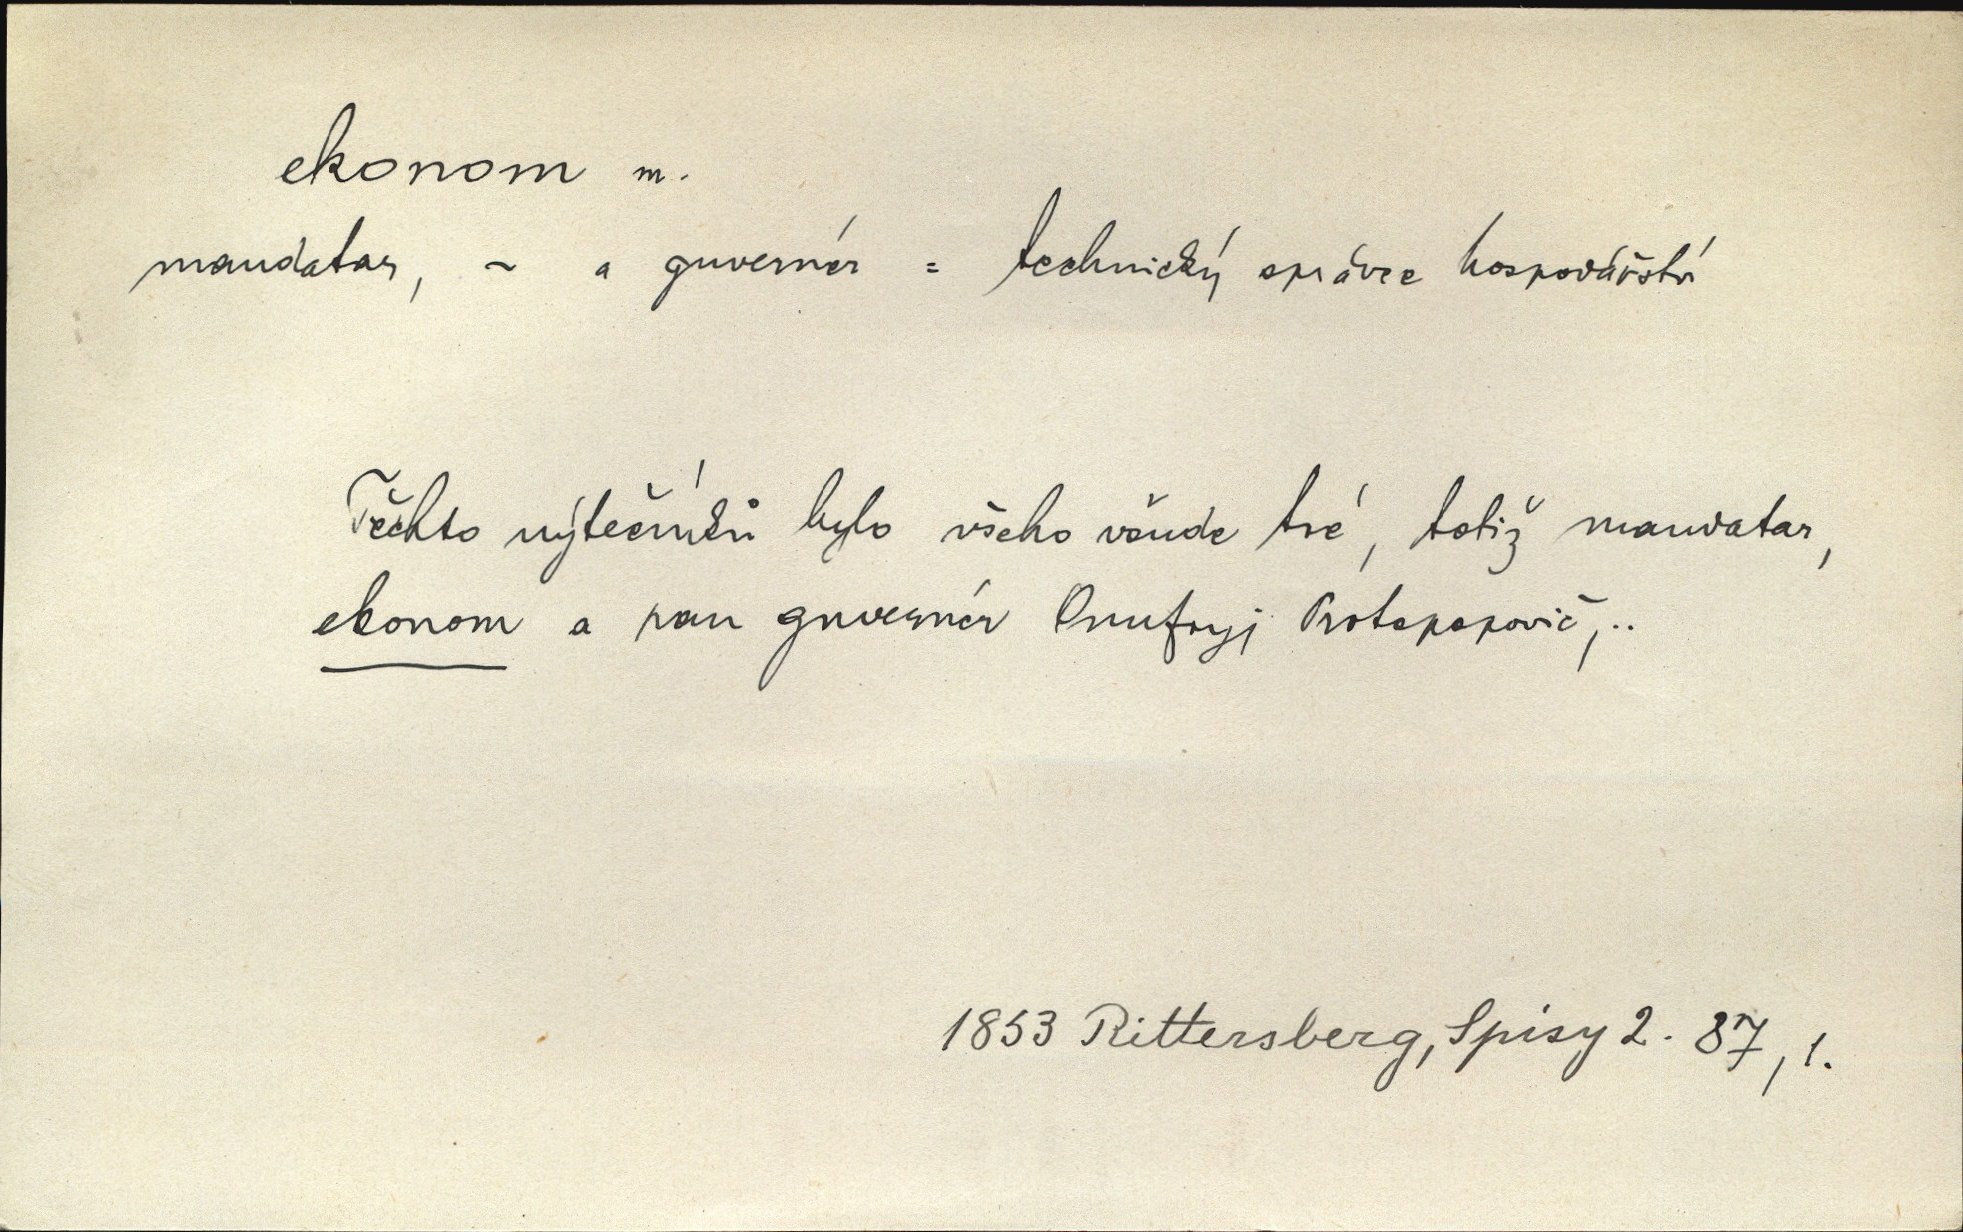 ekonom m.
mandatar, ~ a guvernér = technický správce hospodářství
Těchto výtečníků bylo všeho všude tré, totiž mandatar,
ekonom a pan guvernér Onufryj Protopopovič,..
1853 Rittersberg, Spisy 2. 87, 1.